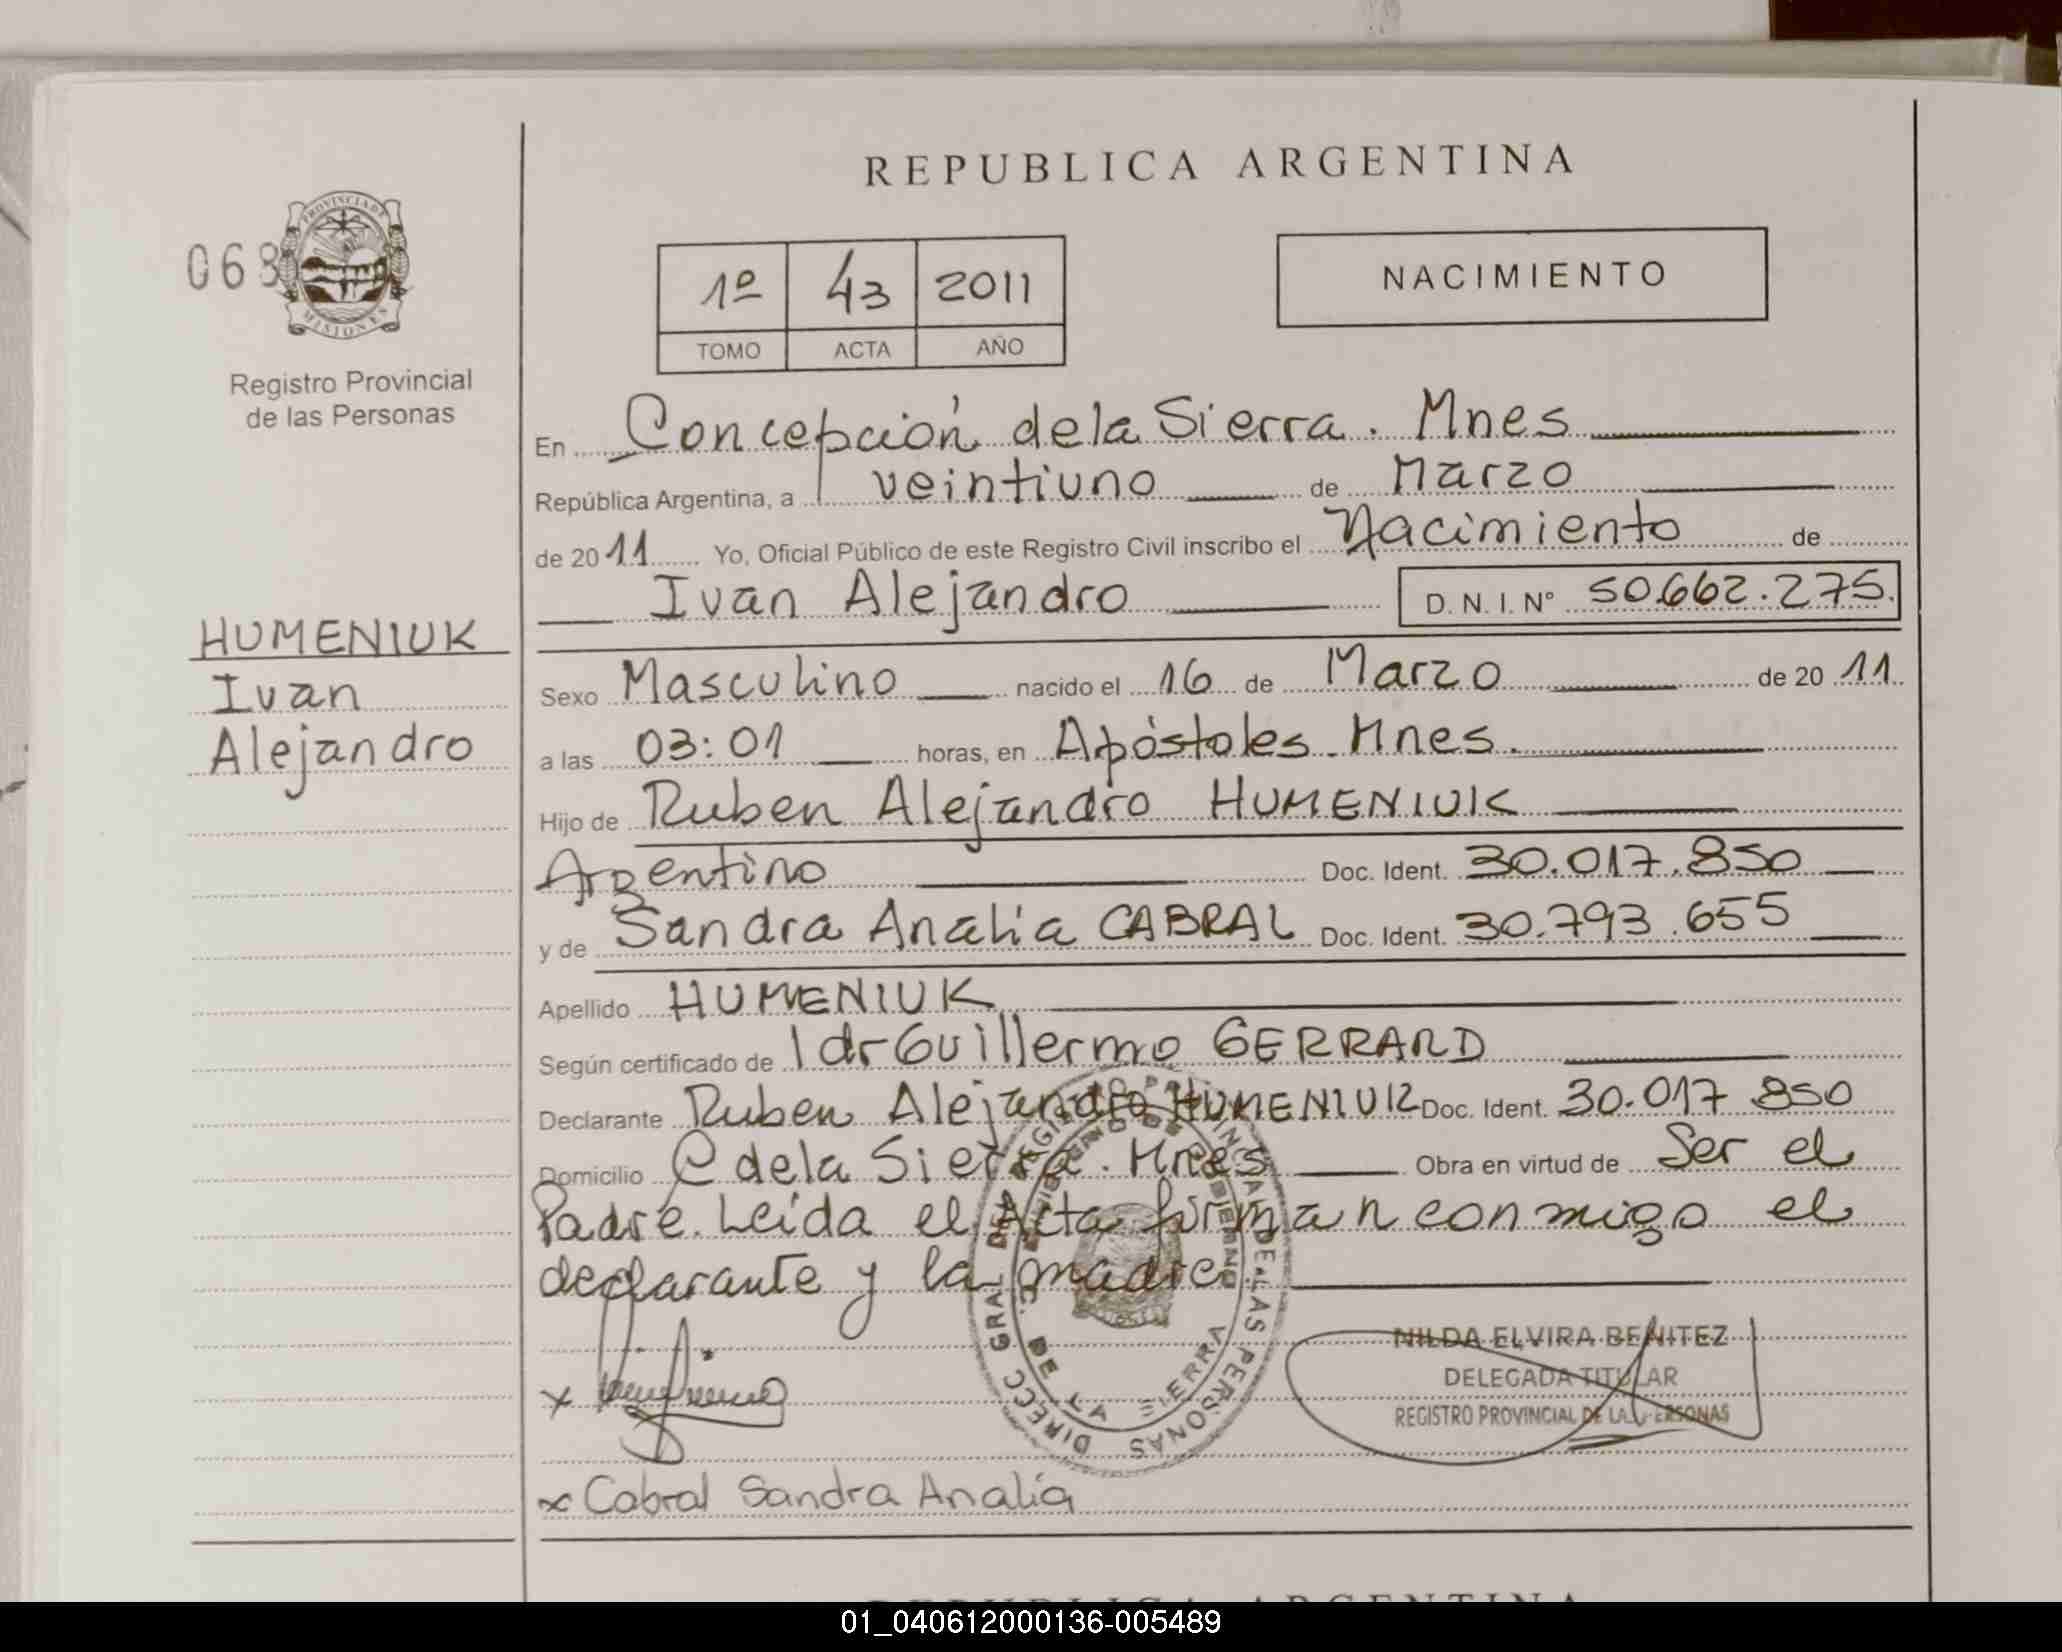 REPUBLICA ARGENTINA
068
PROVINCIA DE
MISIONES
Registro Provincial
de las Personas
1º 43 2011
TOMO ACTA AÑO
NACIMIENTO
HUMENIUK
Ivan
Alejandro
En Concepción de la Sierra. Mnes
República Argentina, a veintiuno de Marzo
de 2011 Yo, Oficial Público de este Registro Civil inscribo el Nacimiento de
Ivan Alejandro D.N.I. Nº 50.662.275.
Sexo Masculino nacido el 16 de Marzo de 2011
a las 03:01 horas, en Apóstoles. Mnes.
Hijo de Ruben Alejandro HUMENIUK
Argentino Doc. Ident. 30.017.850
y de Sandra Analia CABRAL Doc. Ident. 30.793.655
Apellido HUMENIUK
Según certificado de 1 dr Guillermo GERRARD
Declarante Ruben Alejandro HUMENIUK Doc. Ident. 30.017 850
Domicilio C de la Sierra. Mnes Obra en virtud de Ser el
Padre. Leída el Acta firman conmigo el
declarante y la madre
DIRECC GRAL DEL REGISTRO PROVINCIAL DE LAS PERSONAS
C. DE LA SIERRA
NILDA ELVIRA BENITEZ
DELEGADA TITULAR
REGISTRO PROVINCIAL DE LAS PERSONAS
x
x Cabral Sandra Analía
REPUBLICA ARGENTINA
01_040612000136-005489